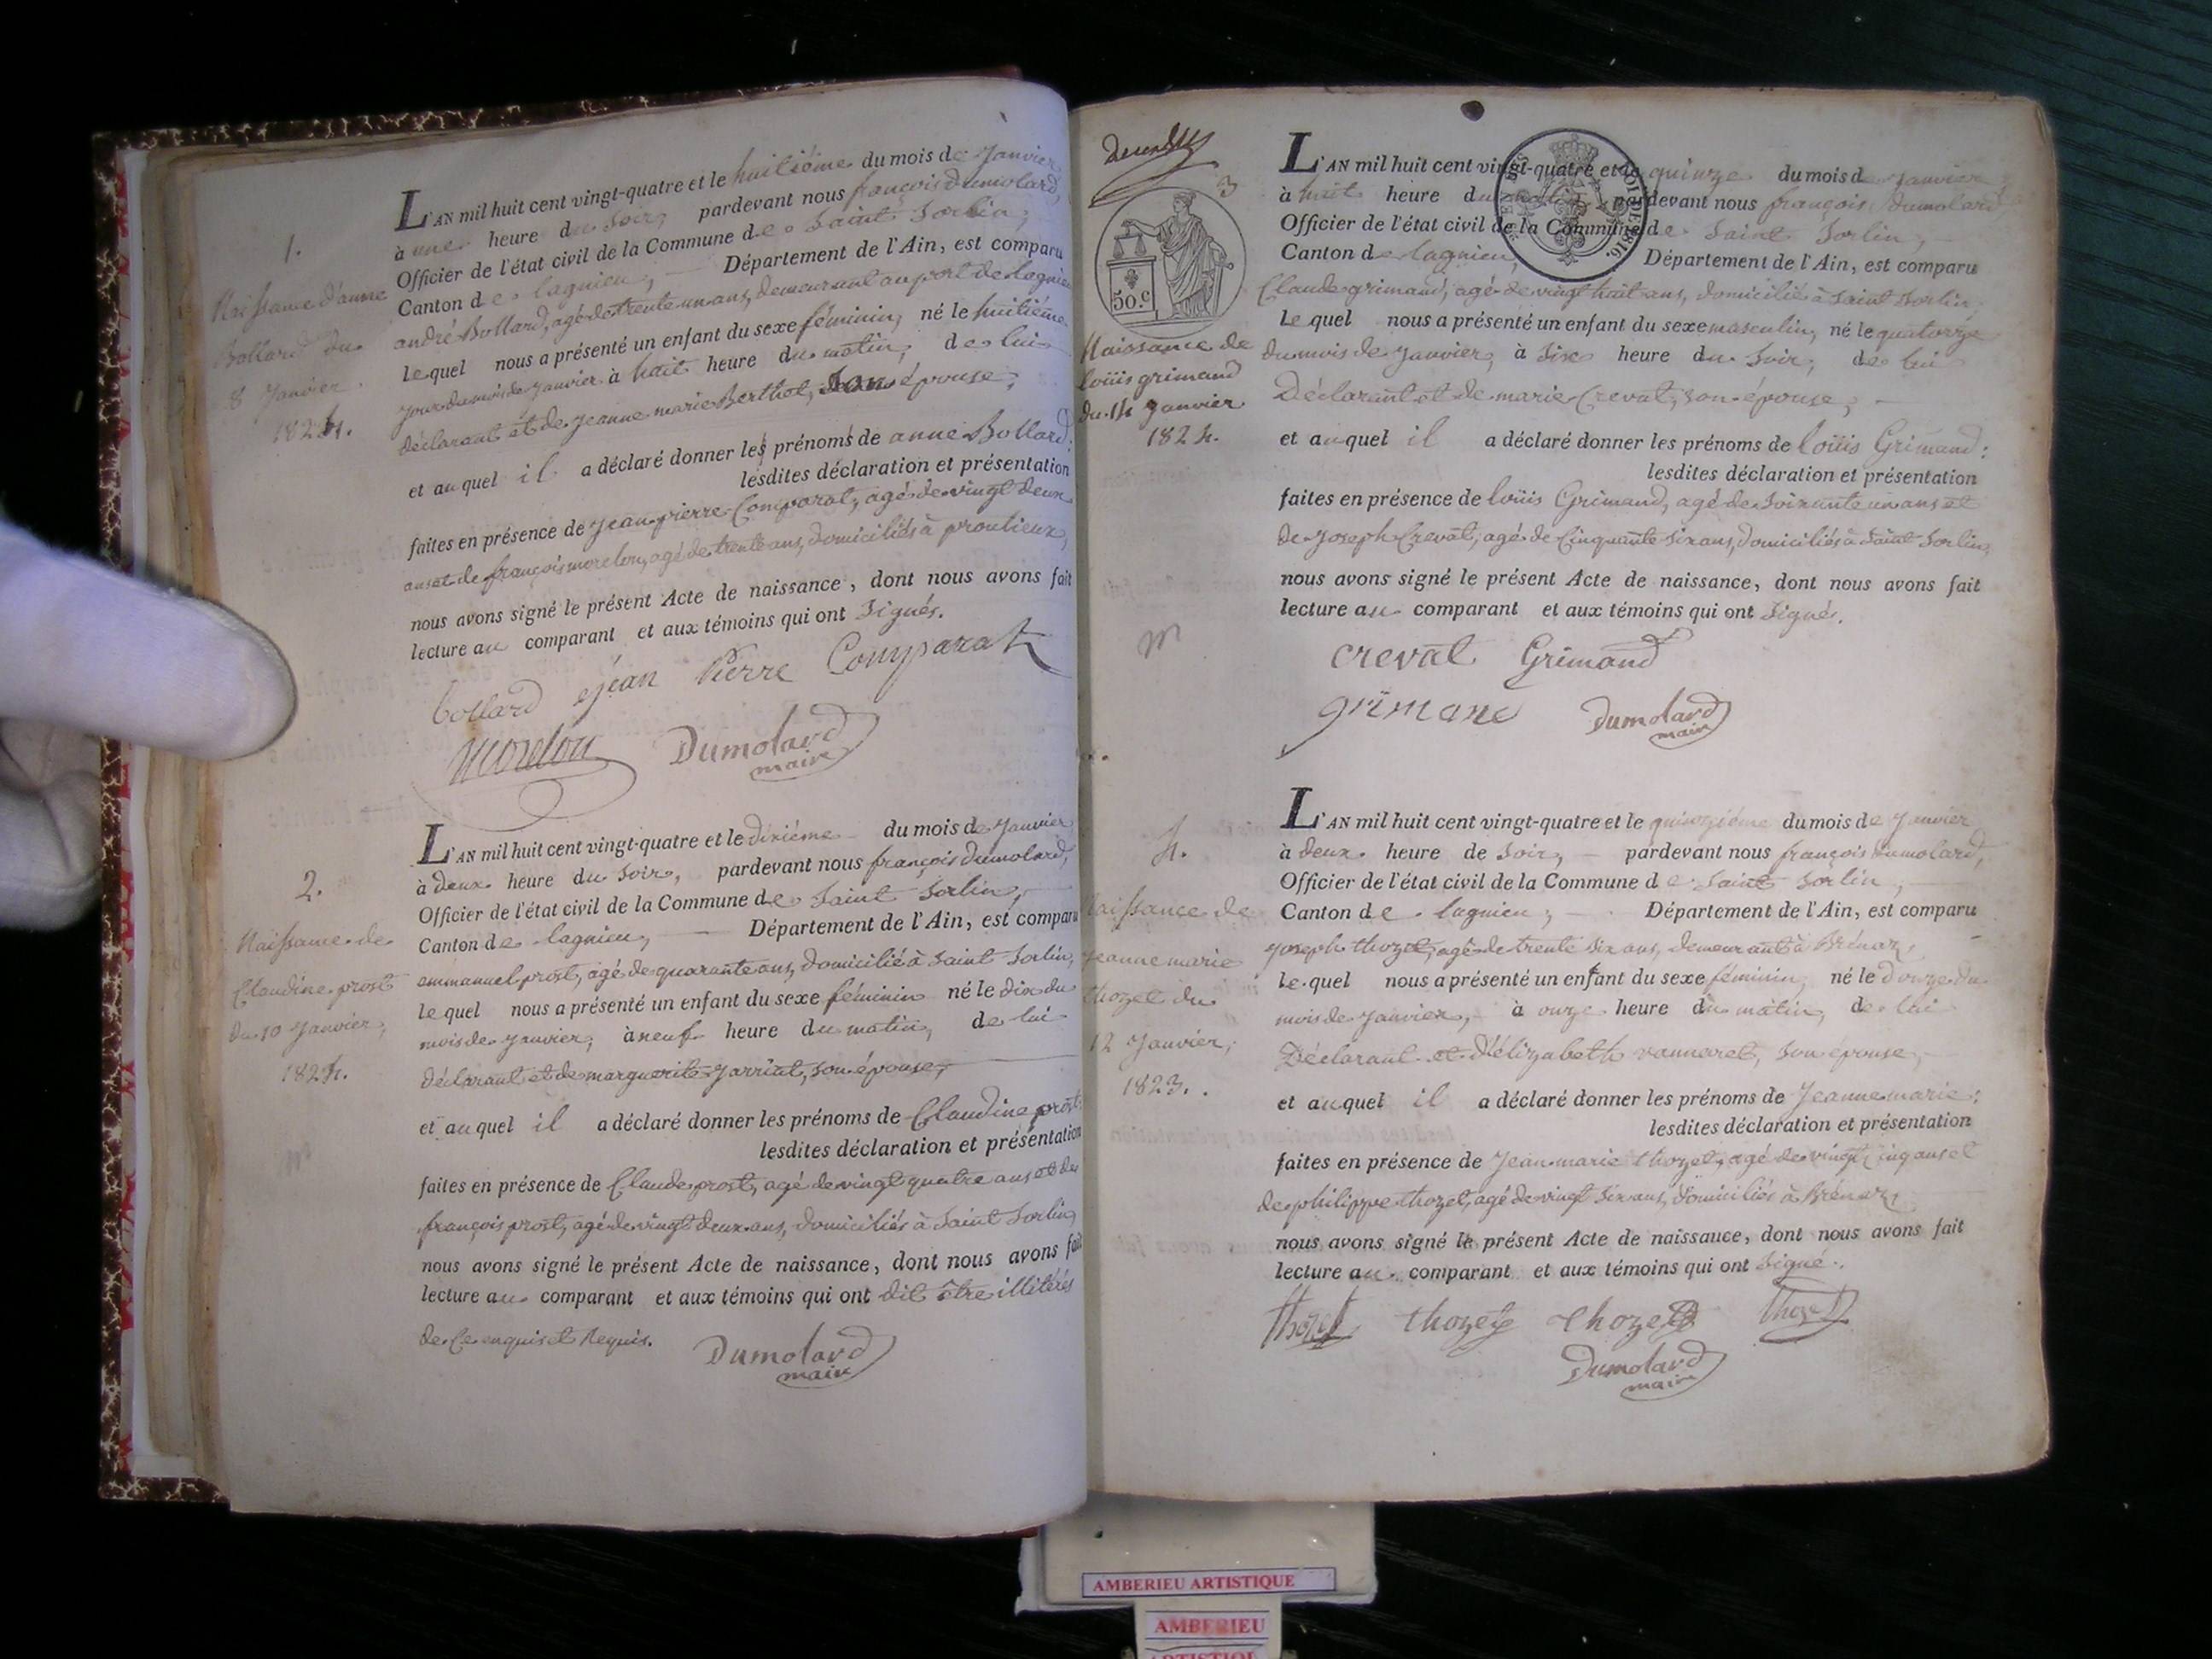 1.
Naissance d'anne
Bollard du
8 Janvier
1824.
L'AN mil huit cent vingt-quatre et le huitiéme du mois de Janvier
à une heure du Soir, pardevant nous françois Dumolard,
Officier de l'état civil de la Commune de Saint Sorlin,
Canton de lagnieu, Département de l'Ain, est comparu
andré Bollard, agé de trente un ans, demeurant au port de lagnieu
Lequel nous a présenté un enfant du sexe féminin, né le huitième
jour du mois de Janvier à huit heure du matin, de lui
déclarant et de Jeanne marie Berthet, Son épouse,
et auquel il a déclaré donner les prénoms de anne Bollard:
lesdites déclaration et présentation
faites en présence de Jean pierre Comparat, agé de vingt deux
ans et de françois morelon, agé de trente ans, domiciliés à proulieux,
nous avons signé le présent Acte de naissance, dont nous avons fait
lecture au comparant et aux témoins qui ont Signés.
bollard Jean Pierre Comparat
Morelon Dumolard
maire
2.
Naissance de
Claudine prost
du 10 Janvier,
1824.
L'AN mil huit cent vingt-quatre et le dixiéme du mois de Janvier
à deux heure du Soir, pardevant nous françois Dumolard,
Officier de l'état civil de la Commune de Saint Sorlin,
Canton de lagnieu, Département de l'Ain, est comparu
emmanuel prost, agé de quarante ans, domicilié à Saint Sorlin,
Lequel nous a présenté un enfant du sexe féminin né le dix du
mois de Janvier, à neuf heure du matin, de lui
déclarant et de marguerite Jarriat, son épouse,
et auquel il a déclaré donner les prénoms de Claudine prost:
lesdites déclaration et présentation
faites en présence de Claude prost, agé de vingt quatre ans et de
françois prost, agé de vingt deux ans, domiciliés à Saint Sorlin,
nous avons signé le présent Acte de naissance, dont nous avons fait
lecture au comparant et aux témoins qui ont dit être illitérés
de Ce enquis et Requis.
Dumolard
maire
3
50.c
Naissance de
loüis grimand
du 14 Janvier
1824.
L'AN mil huit cent vingt-quatre et le quinze du mois de Janvier
à huit heure du pardevant nous françois Dumolard
Officier de l'état civil de la Commune de Saint Sorlin,
Canton de lagnieu, Département de l'Ain, est comparu
Claude grimand, agé de vingt huit ans, domicilié à Saint Sorlin,
Lequel nous a présenté un enfant du sexe masculin, né le quatorze
du mois de Janvier, à Six heure du Soir, de lui
Déclarant et de marie Crevat, son épouse,
et auquel il a déclaré donner les prénoms de loüis Grimand:
lesdites déclaration et présentation
faites en présence de loüis Grimand, agé de Soixante un ans et
de Joseph Crevat, agé de Cinquante Six ans, domiciliés à Saint Sorlin,
nous avons signé le présent Acte de naissance, dont nous avons fait
lecture au comparant et aux témoins qui ont Signés.
crevat Grimand
grimand Dumolard
maire
4.
Naissance de
Jeanne marie
thozet du
12 Janvier,
1823.
L'AN mil huit cent vingt-quatre et le quinziéme du mois de Janvier
à deux heure de Soir, pardevant nous françois Dumolard,
Officier de l'état civil de la Commune de Saint Sorlin,
Canton de lagnieu, Département de l'Ain, est comparu
Joseph thozet, agé de trente Six ans, demeurant à Brénaz,
Lequel nous a présenté un enfant du sexe féminin, né le douze du
mois de Janvier, à onze heure du matin, de lui
Déclarant et d'élizabeth vanneret, Son épouse,
et auquel il a déclaré donner les prénoms de Jeanne marie:
lesdites déclaration et présentation
faites en présence de Jean marie thozet, agé de vingt Cinq ans et
de philippe thozet, agé de vingt Six ans, domiciliés à Brénaz,
nous avons signé le présent Acte de naissance, dont nous avons fait
lecture au comparant et aux témoins qui ont Signé.
thozet thozet thozet thozet
Dumolard
maire
AMBERIEU ARTISTIQUE
AMBERIEU
ARTISTIQUE